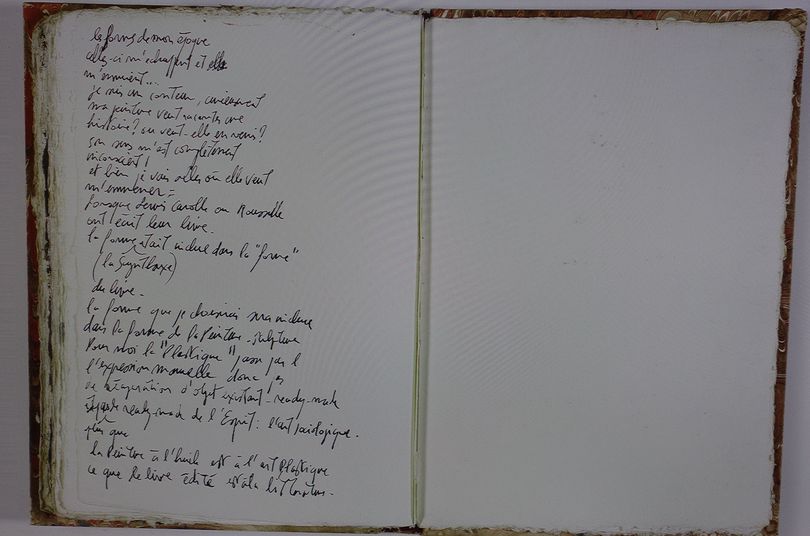 les formes de mon époque
celles-ci m'échappent et elle
m'ennuient...
je suis un conteur, curieusement
ma peinture veut raconter une
histoire? ou veut-elle en venir?
son sens m'est complètement
inconscient!
et bien je vais aller où elle veut
m'emmener =
Lorsque Lewis Carolle ou Rousselle
ont écrit leur livre.
la forme était inclue dans la "forme"
(la synthaxe)
du livre.
la forme que je choisirai sera inclue
dans la forme de la Peinture - sculpture
Pour moi la "Plastique" passe par
l'expression manuelle donc
récupération d'objet existant - ready-made
ready-made de l'Esprit: l'art sociologique.
plus que
la Peinture à l'huile est à l'art Plastique
ce que le livre édité est à la littérature.